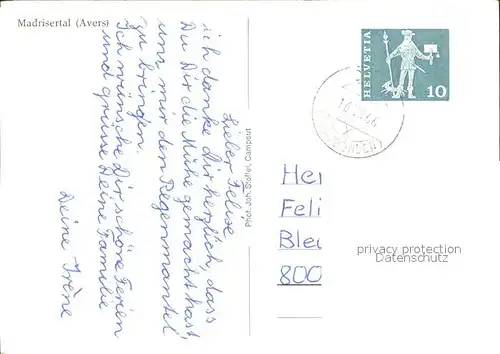 Madrisertal (Avers)
Lieber Felix
ich danke dir herzlich, dass
Du Dir die Mühe gemacht hast,
um mir den Regenmantel
zu bringen.
Ich wünsche Dir schöne Ferien
und grüsse Deine Familie
Deine Irène
Phot. Joh. Stoffel, Campsut
HELVETIA
10
Feli
800
privacy protection
Datenschutz